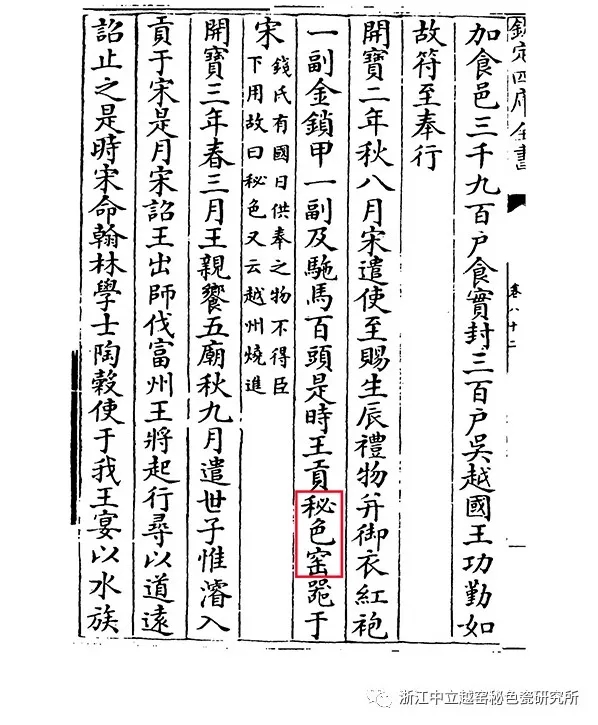 欽定四庫全書
卷八十二
加食邑三千九百戶食實封三百戶吳越國王功勤如
故符至奉行
開寶二年秋八月宋遣使至賜生辰禮物并御衣紅袍
一副金鎖甲一副及駞馬百頭是時王貢秘色窑噐于
宋
錢氏有國日供奉之物不得臣
下用故曰秘色又云越州燒進
開寶三年春三月王親饗五廟秋九月遣世子惟濬入
貢于宋是月宋詔王出師伐富州王將起行尋以道遠
詔止之是時宋命翰林學士陶榖使于我王宴以水族
浙江中立越窑秘色瓷研究所